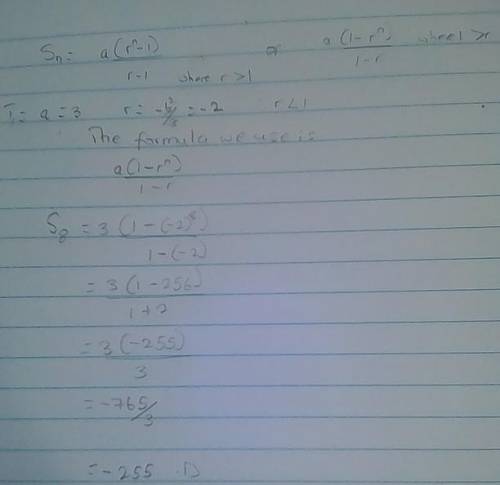 Sn = a(rⁿ-1) / r-1 where r >1 or a(1-rⁿ) / 1-r where 1 > r
T₁ = a = 3 r = -6/3 = -2 r < 1
The formula we use is
a(1-rⁿ) / 1-r
S₈ = 3(1-(-2)⁸) / 1-(-2)
= 3(1-256) / 1+2
= 3(-255) / 3
= -765/3
= -255 D